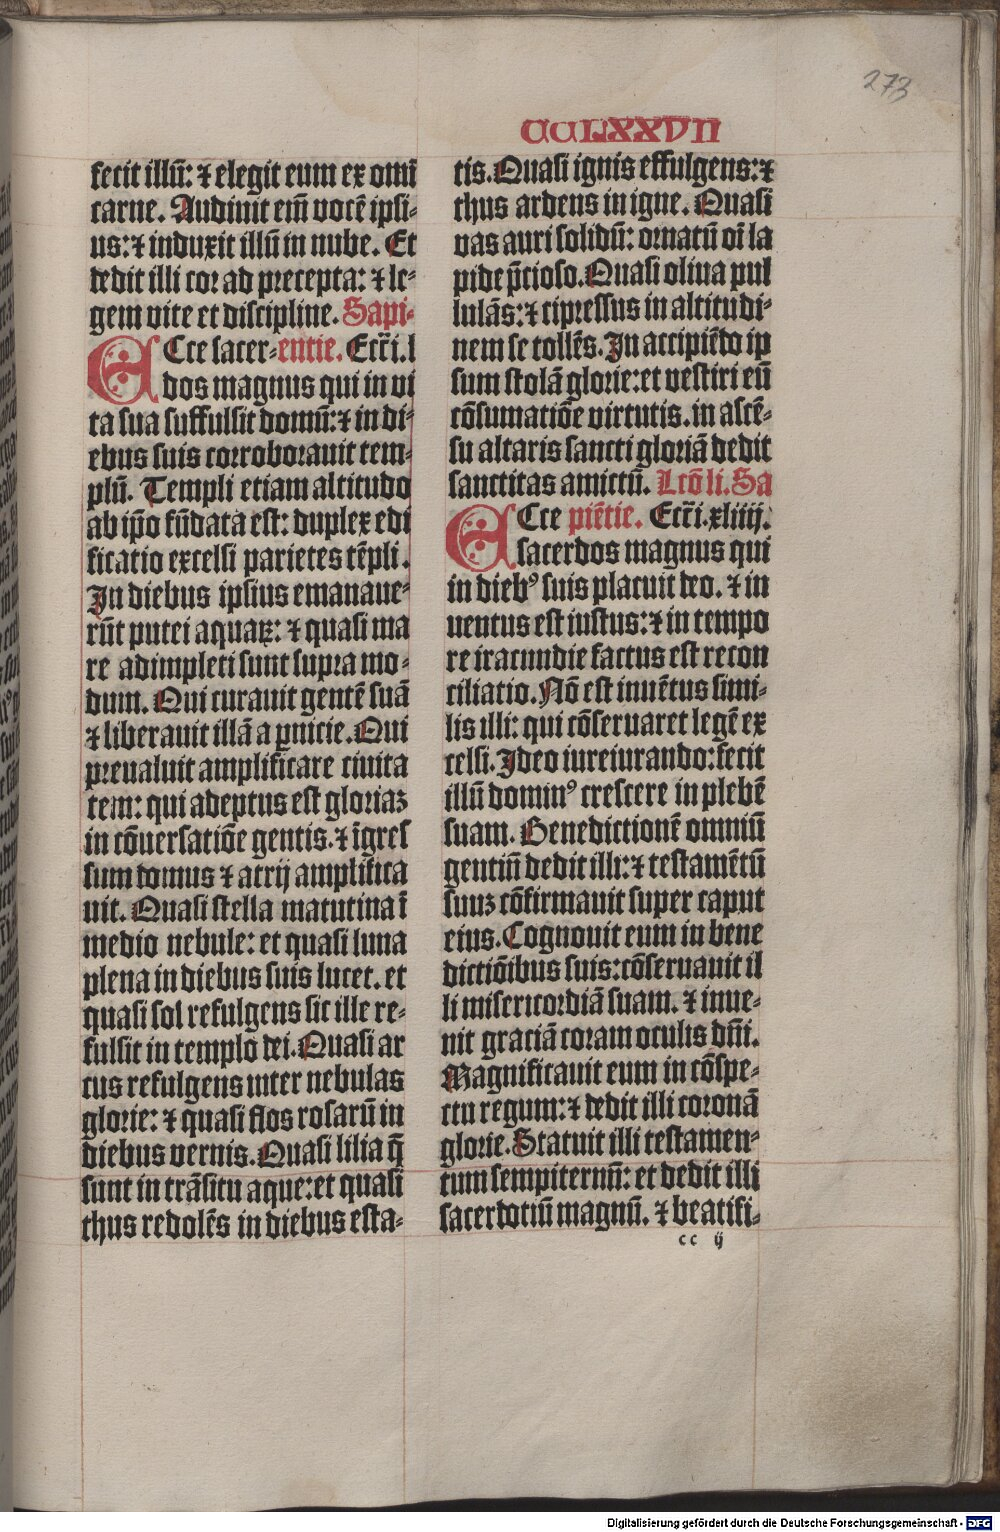 273
CCLXXVII
fecit illū: ⁊ elegit eum ex omī
carne. Audiuit em̄ vocē ipsi⸗
us: ⁊ induxit illū in nube. Et
dedit illi cor ad precepta: ⁊ le⸗
gem vite et discipline. Sapi⸗
ECce sacer⸗ entie. Eccī. l
dos magnus qui in vi
ta sua suffulsit domū: ⁊ in di⸗
ebus suis corroborauit tem⸗
plū. Templi etiam altitudo
ab ip̄o fūdata est: duplex edi
ficatio excelsi parietes tēpli.
In diebus ipsius emanaue⸗
rūt putei aquaꝝ: ⁊ quasi ma
re adimpleti sunt supra mo⸗
dum. Qui curauit gentē suā
⁊ liberauit illā a ꝑnicie. Qui
preualuit amplificare ciuita
tem: qui adeptus est gloriaꝫ
in cōuersatiōe gentis. ⁊ īgres
sum domus ⁊ atrij amplifica
uit. Quasi stella matutina ī
medio nebule: et quasi luna
plena in diebus suis lucet. et
quasi sol refulgens sic ille re⸗
fulsit in templo dei. Quasi ar
cus refulgens inter nebulas
glorie: ⁊ quasi flos rosarū in
diebus vernis. Quasi lilia q̄
sunt in trāsitu aque: et quasi
thus redolēs in diebus esta⸗
tis. Quasi ignis effulgens: ⁊
thus ardens in igne. Quasi
vas auri solidū: ornatū oī la
pide p̄cioso. Quasi oliua pul
lulās: ⁊ cipressus in altitudi⸗
nem se tollēs. In accipiēdo ip
sum stolā glorie: et vestiri eū
cōsumatiōe virtutis. in ascē⸗
su altaris sancti gloriā dedit
sanctitas amictū. Lcō li. Sa
ECce piētie. Eccī. xliiij.
sacerdos magnus qui
in dieb⁹ suis placuit deo. ⁊ in
uentus est iustus: ⁊ in tempo
re iracundie factus est recon
ciliatio. Nō est inuētus simi⸗
lis illi: qui cōseruaret legē ex
celsi. Ideo iureiurando: fecit
illū domin⁹ crescere in plebē
suam. Benedictionē omniū
gentiū dedit illi: ⁊ testamētū
suuꝫ cōfirmauit super caput
eius. Cognouit eum in bene
dictiōibus suis: cōseruauit il
li misericordiā suam. ⁊ inue⸗
nit graciā coram oculis dn̄i.
Magnificauit eum in cōspe⸗
ctu regum: ⁊ dedit illi coronā
glorie. Statuit illi testamen⸗
tum sempiternū: et dedit illi
sacerdotiū magnū. ⁊ beatifi⸗
cc ij
Digitalisierung gefördert durch die Deutsche Forschungsgemeinschaft - DFG